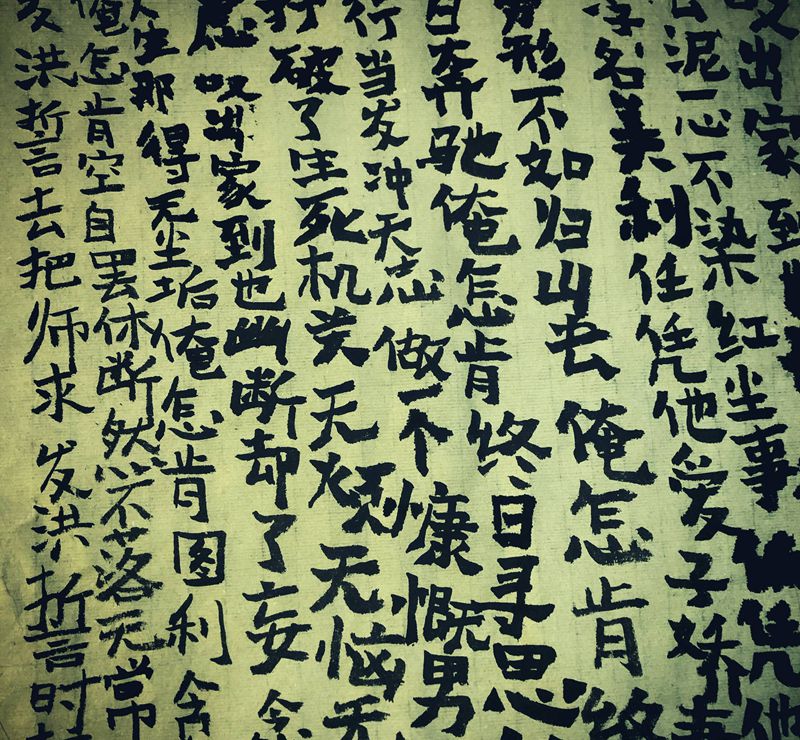 叹出家到
泥一心不染红尘事任凭他
字名美利任凭他爱子娇妻
劳形不如归山去俺怎肯终
日奔驰俺怎肯终日寻思
行当发冲天志做一个慷慨男
打破了生死机关无烦无恼无
愿叹出家到也幽断却了妄念
人生那得无尘垢俺怎肯图利贪
俺怎肯空自罢休断然不落无常
发洪誓言去把师求发洪誓言时